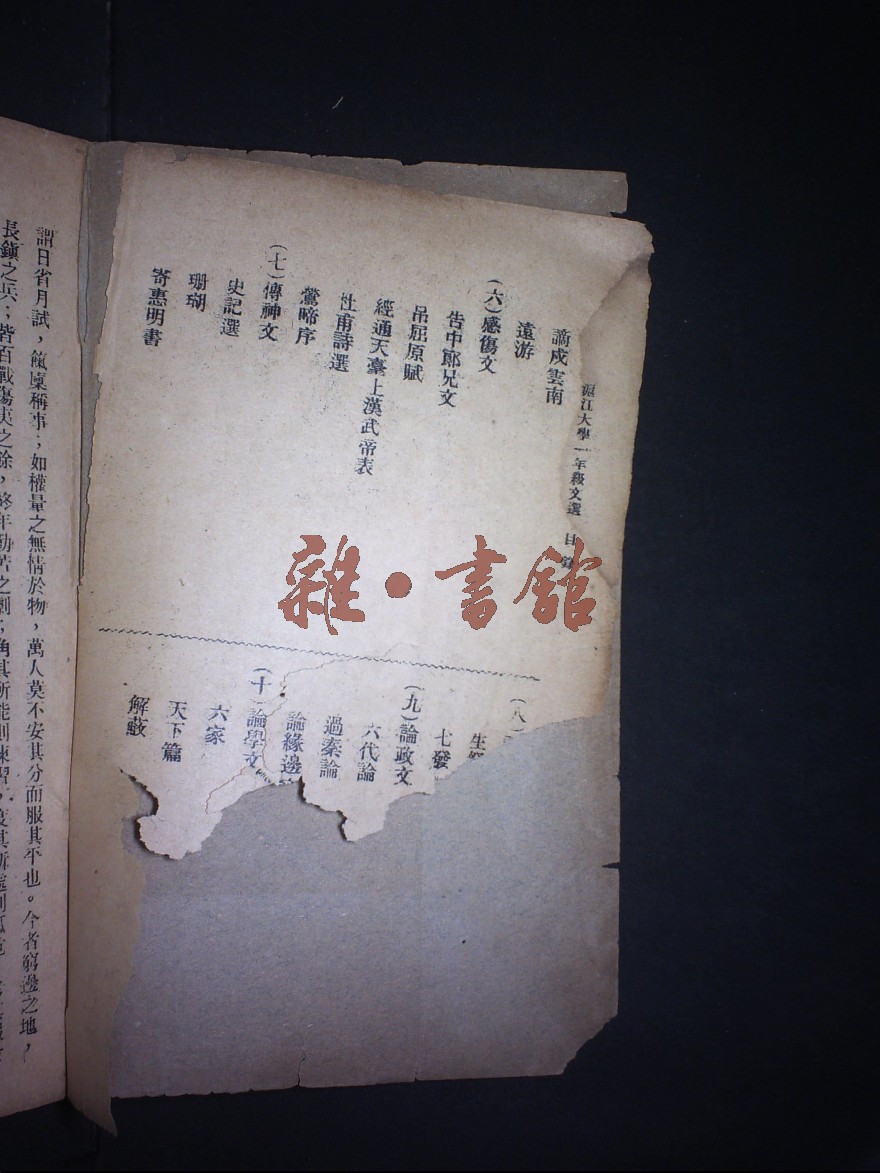 滬江大學一年級文選 目錄
謫戍雲南
遠游
(六)感傷文
告中郎兄文
吊屈原賦
經通天臺上漢武帝表
杜甫詩選
鶯啼序
(七)傳神文
史記選
珊瑚
寄惠明書
(八)
生
七發
(九)論政文
六代論
過秦論
論緣邊
(十)論學文
六家
天下篇
解蔽
謂日省月試,餼廩稱事;如權量之無情於物,萬人莫不安其分而服其平也。今者窮邊之地,
長鎮之兵;皆百戰傷夷之餘,終年勤苦之劇;角其所能則練習,度其所處則孤危
雜·書館